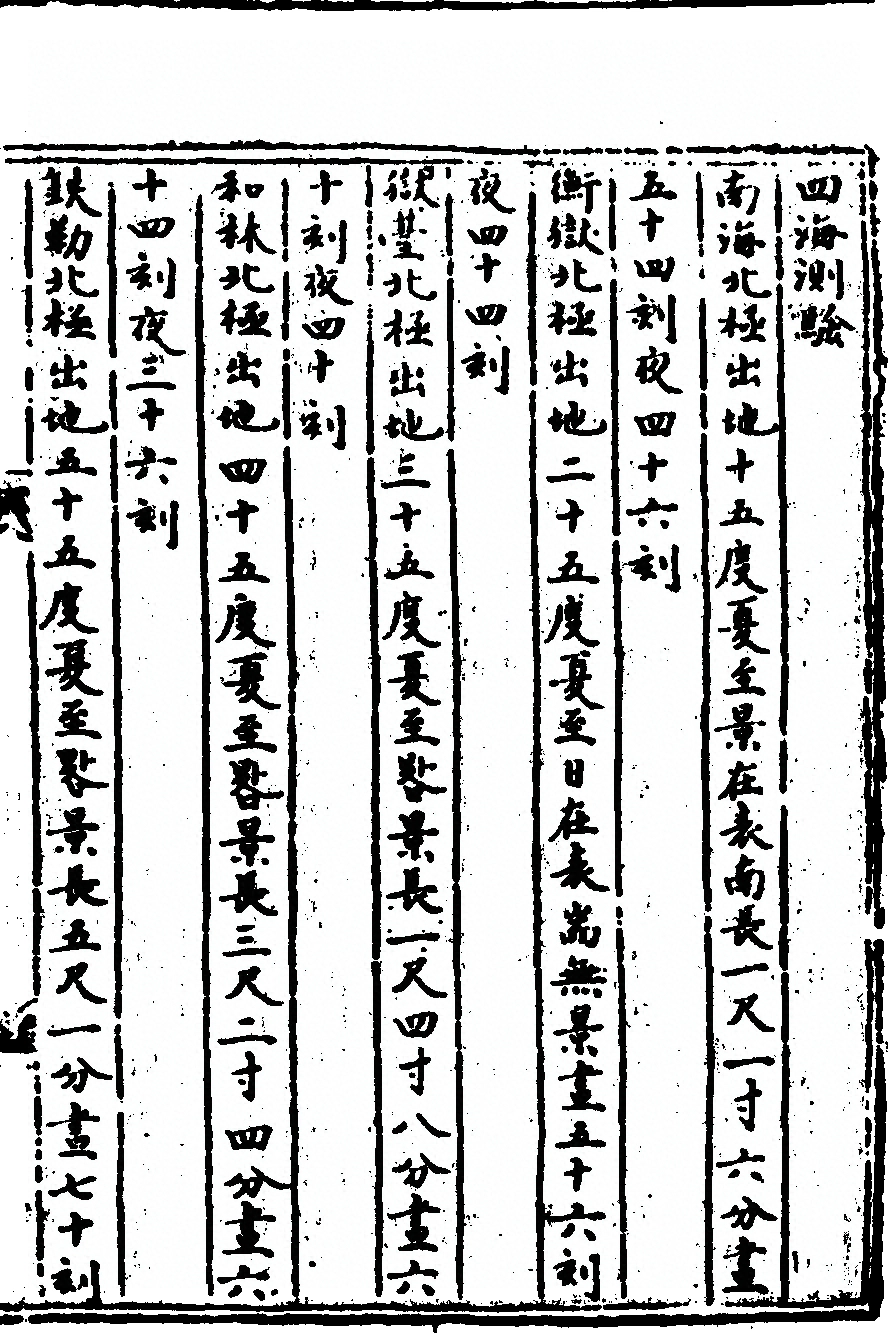 四海測驗
南海北極出地十五度夏至景在表南長一尺一寸六分晝
五十四刻夜四十六刻
衡嶽北極出地二十五度夏至日在表耑無景晝五十六刻
夜四十四刻
嶽臺北極出地三十五度夏至晷景長一尺四寸八分晝六
十刻夜四十刻
和林北極出地四十五度夏至晷景長三尺二寸四分晝六
十四刻夜三十六刻
鉄勒北極出地五十五度夏至晷景長五尺一分晝七十刻